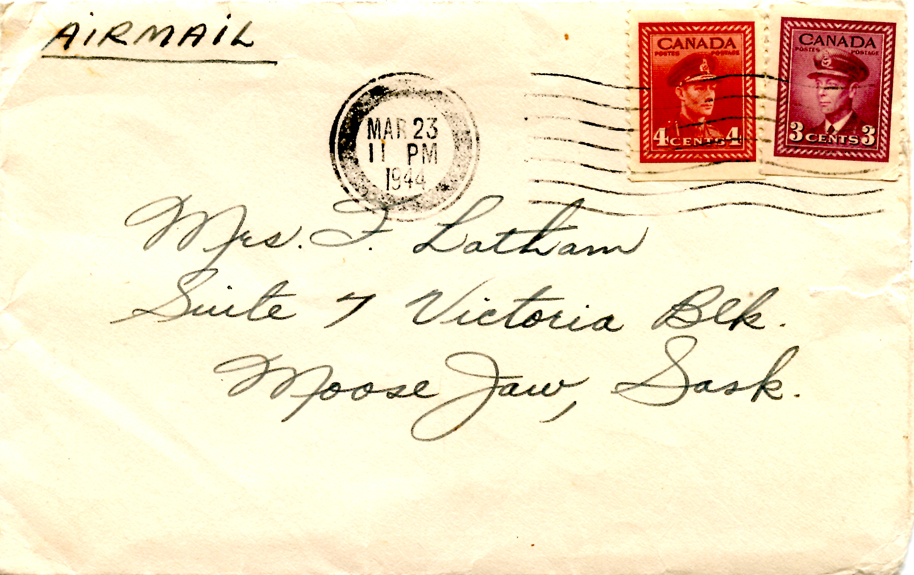 AIRMAIL
CANADA
POSTES POSTAGE
4 CENTS 4
CANADA
POSTES POSTAGE
3 CENTS 3
MAR 23
11 PM
1944
Mrs. F. Latham
Suite 7 Victoria Blk.
Moose Jaw, Sask.